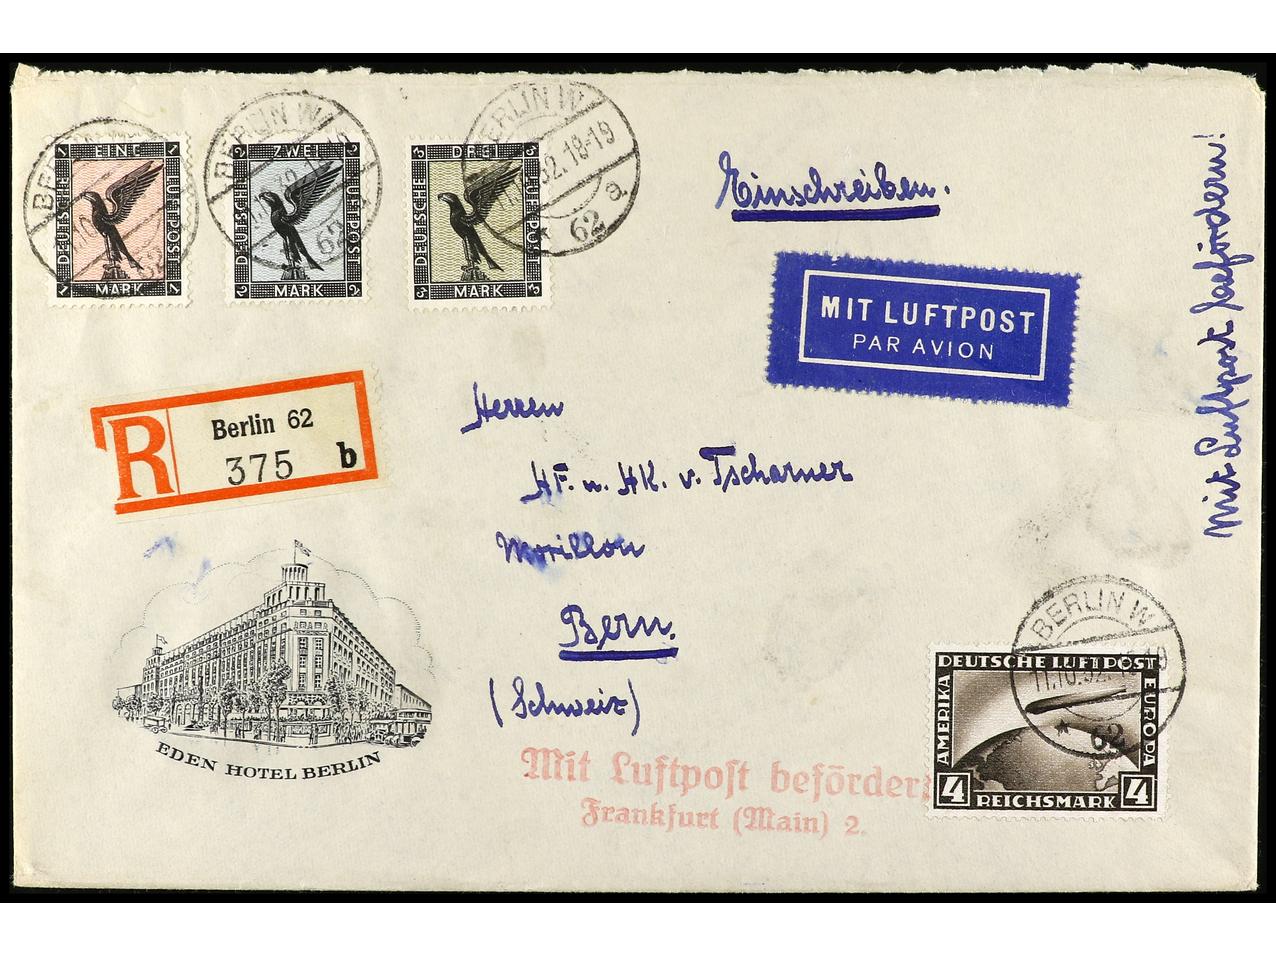 BERLIN W
1 EINE 1
DEUTSCHE
LUFTPOST
1 MARK 1
BERLIN W
62
2 ZWEI 2
DEUTSCHE
LUFTPOST
2 MARK 2
BERLIN W
32.18-19
* 62 a
3 DREI 3
DEUTSCHE
LUFTPOST
3 MARK 3
Einschreiben.
Mit Luftpost befördern!
MIT LUFTPOST
PAR AVION
R
Berlin 62
375 b
Herren
HF. u. HK. v. Tscharner
Morillon
Bern.
(Schweiz)
EDEN HOTEL BERLIN
Mit Luftpost befördert
Frankfurt (Main) 2.
BERLIN W
11.10.32.
* 62
DEUTSCHE LUFTPOST
AMERIKA
EUROPA
4 REICHSMARK 4